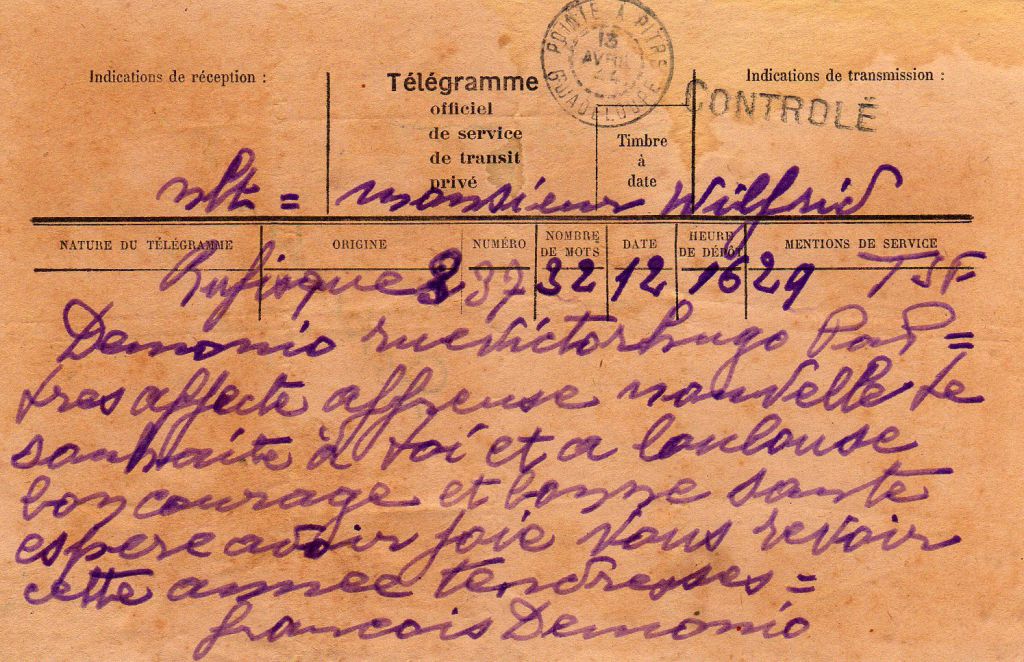 POINTE À PITRE
13
AVRIL
44
GUADELOUPE
Indications de réception :
Télégramme
officiel
de service
de transit
privé
Timbre
à
date
Indications de transmission :
CONTROLÉ
nlt = monsieur Wilfrid
NATURE DU TÉLÉGRAMME ORIGINE NUMÉRO NOMBRE DE MOTS DATE HEURE DE DÉPÔT MENTIONS DE SERVICE
Rufisque 37 32 12 1629 TSF
Demonio rue victorhugo PaP =
tres affecte affreuse nouvelle te
souhaite à toi et a loulouse
bon courage et bonne sante
espere avoir joie vous revoir
cette annee tendresses =
francois Demonio